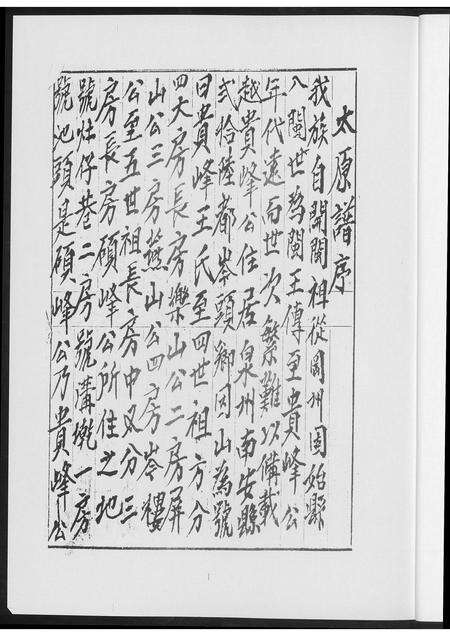 太原譜序
我族自開閩祖從閩州固始縣
入閩世勢閩王傳至貴峰公
年代遠而世次繁難以備載
越貴峰公住居泉州南安縣
弍拾陸都岑頭鄉因山為號
曰貴峰王氏至四世祖方分
四大房長房樂山公二房屏
山公三房燕山公四房岑樓
公至五世祖長房中又分三
房長房碩峰公所住之地
號灶仔巷二房號溝墘一房
號池頭是碩峰公乃貴峰公